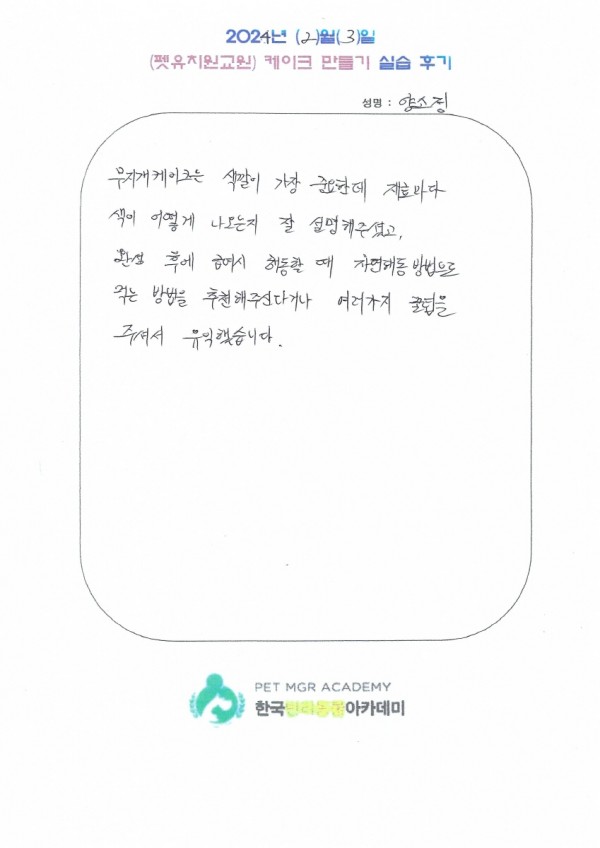 2024년 (2)월(3)일
(펫유치원교원) 케이크 만들기 실습 후기
성명 : 양소정
무지개케이크는 색깔이 가장 중요한데 재료마다
색이 어떻게 나오는지 잘 설명해주셨고,
완성 후에 급여시 해동할 때 자연해동방법으로
먹는 방법을 추천해주신다거나 여러가지 꿀팁을
주셔서 유익했습니다.
PET MGR ACADEMY
한국반려동물아카데미